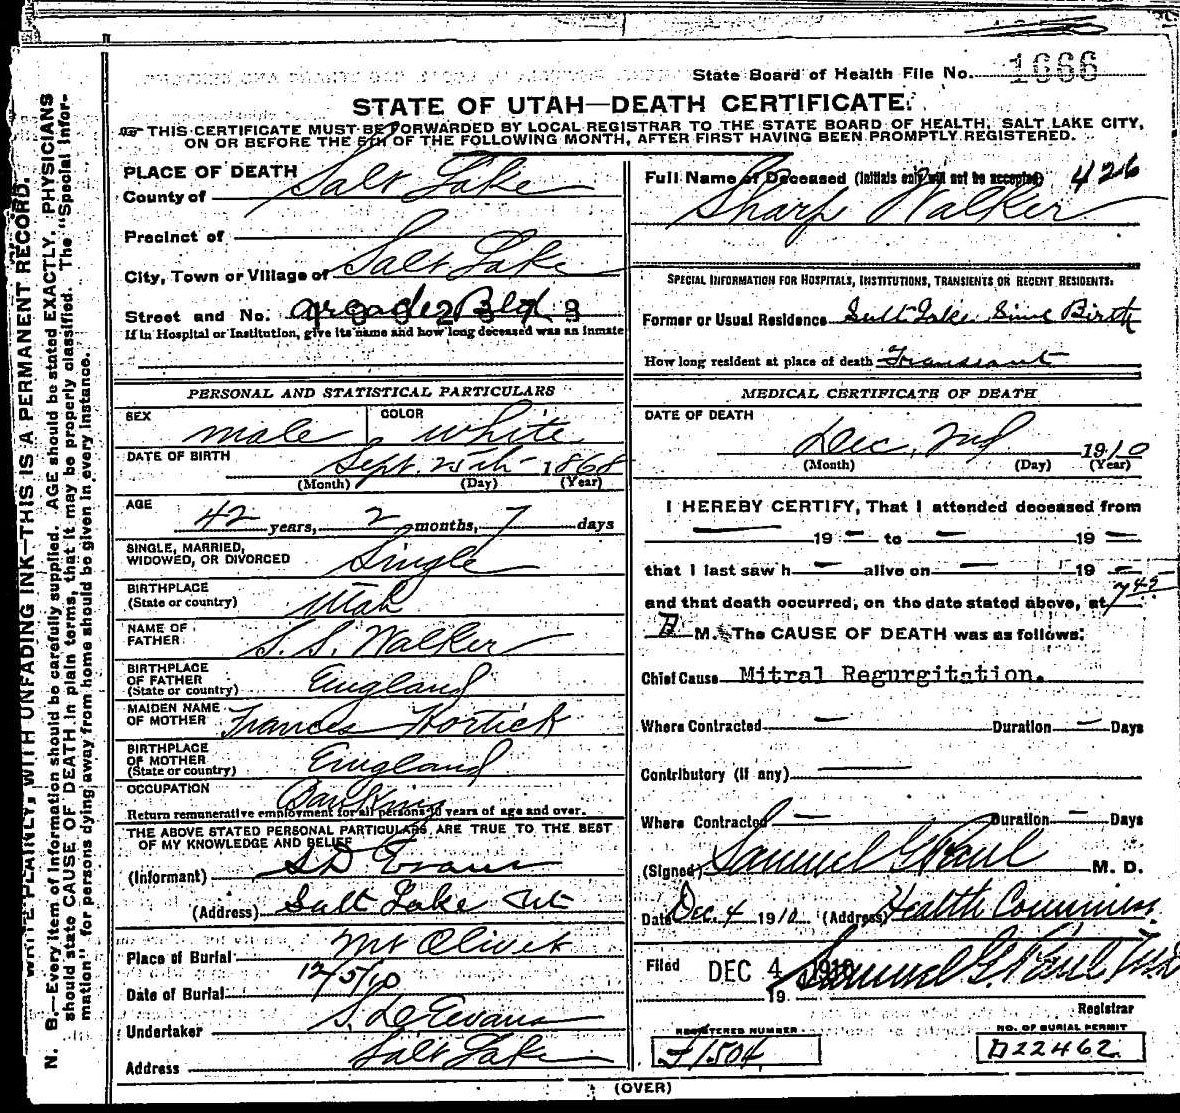 State Board of Health File No. 1666
STATE OF UTAH—DEATH CERTIFICATE.
THIS CERTIFICATE MUST BE FORWARDED BY LOCAL REGISTRAR TO THE STATE BOARD OF HEALTH, SALT LAKE CITY,
ON OR BEFORE THE 5TH OF THE FOLLOWING MONTH, AFTER FIRST HAVING BEEN PROMPTLY REGISTERED.
PLACE OF DEATH
County of Salt Lake
Precinct of
City, Town or Village of Salt Lake
Street and No.
If in Hospital or Institution, give its name and how long deceased was an inmate
PERSONAL AND STATISTICAL PARTICULARS
SEX male COLOR white
DATE OF BIRTH Sept. 25th 1868
(Month) (Day) (Year)
AGE 42 years, 2 months, 7 days
SINGLE, MARRIED,
WIDOWED, OR DIVORCED Single
BIRTHPLACE
(State or country) Utah
NAME OF
FATHER S. S. Walker
BIRTHPLACE
OF FATHER
(State or country) England
MAIDEN NAME
OF MOTHER Frances
BIRTHPLACE
OF MOTHER
(State or country) England
OCCUPATION Banking
Return remunerative employment for all persons 10 years of age and over.
THE ABOVE STATED PERSONAL PARTICULARS ARE TRUE TO THE BEST
OF MY KNOWLEDGE AND BELIEF
(Informant) S D Evans
(Address) Salt Lake Ut
Place of Burial Mt Olivet
Date of Burial 12/5/10
Undertaker S. D. Evans
Address Salt Lake
Full Name of Deceased (Initials only will not be accepted) 426
Sharp Walker
SPECIAL INFORMATION FOR HOSPITALS, INSTITUTIONS, TRANSIENTS OR RECENT RESIDENTS:
Former or Usual Residence Salt Lake Since Birth
How long resident at place of death Transeant
MEDICAL CERTIFICATE OF DEATH
DATE OF DEATH
Dec. 2nd 1910
(Month) (Day) (Year)
I HEREBY CERTIFY, That I attended deceased from
— 19 — to — 19 —
that I last saw h — alive on — 19 —
and that death occurred, on the date stated above, at 7 45
M. The CAUSE OF DEATH was as follows:
Chief Cause Mitral Regurgitation.
Where Contracted — Duration — Days
Contributory (if any) —
Where Contracted — Duration — Days
(Signed) Samuel G Paul M. D.
Date Dec. 4 1910 (Address) Health Commiss.
Filed DEC 4 1910 19 Samuel G. Paul M.D.
Registrar
REGISTERED NUMBER
NO. OF BURIAL PERMIT
22462
(OVER)
N. B.—Every item of information should be carefully supplied. AGE should be stated EXACTLY. PHYSICIANS
should state CAUSE OF DEATH in plain terms, that it may be properly classified. The "Special Infor-
mation" for persons dying away from home should be given in every instance.
WRITE PLAINLY, WITH UNFADING INK—THIS IS A PERMANENT RECORD.